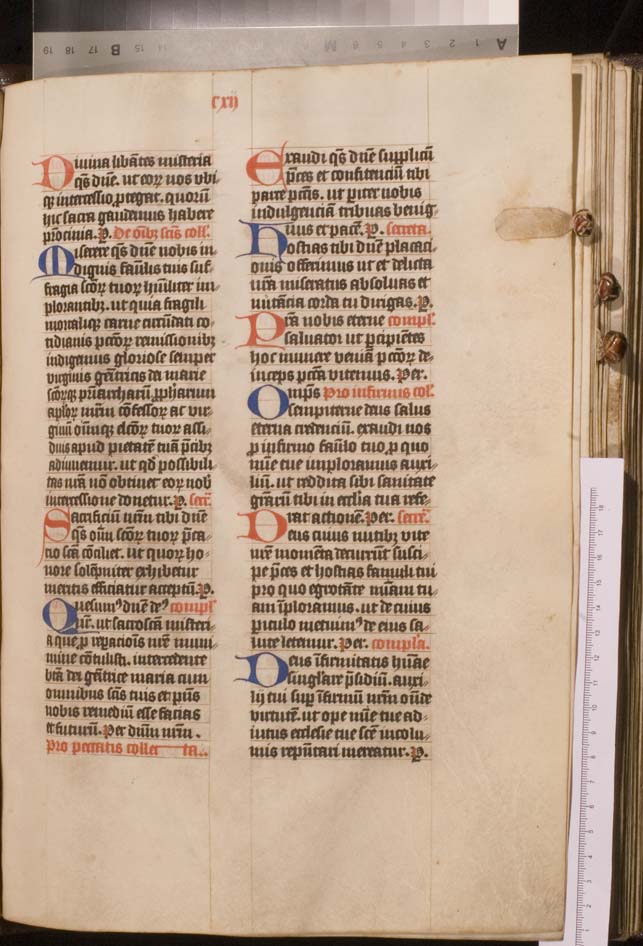 Cxij
Diuina libãtes misteria
q̃s dñe. ut eoꝝ nos ubi
qꝫ intercessio ꝓtegat. quorũ
hic sacra gaudemus habere
p̃rocinia. P. De oĩbꝫ sc̃is coll.
Miserere q̃s dñe nobis in⸗
dignis famĩlis tuis suf⸗
fragia sc̃oꝝ tuoꝝ hũiliter im⸗
plorantibꝫ. ut quia fragili
mortaliqꝫ carne circũdati co⸗
tidianis pctõꝝ remissionibꝫ
indigemus gloriose semper
virginis geñtricis dei marie
sc̃oꝝqꝫ pr̃iarcharũ ꝓpharum
apl̃oꝝ mr̃um cõfessoꝝ ac vir⸗
ginũ om̃iumqꝫ elc̃oꝝ tuoꝝ assi⸗
duis apud pietatẽ tuã p̃cibꝫ
adiuuemur. ut qd̃ possibili
tas nr̃a nõ obtinet eoꝝ nob̃
intercessione donetur. P. secr̃.
Sacrificiũ nr̃m tibi dñe
q̃s om̃iũ sc̃oꝝ tuoꝝ p̃ca⸗
tio sc̃a cõciliet. ut quoꝝ ho⸗
nore solẽpniter exhibetur
meritis efficiatur acceptũ. P.
Quesumꝰ dñe deꝰ compl̃
nr̃. ut sacrosc̃a misteri⸗
a que ꝓ reꝑacioĩs nr̃e muni⸗
mine cõtulisti. intercedente
bt̃a dei geñtrice maria cum
omnibus sc̃is tuis et p̃ñs
nobis remediũ esse facias
et futurũ. Per dñm nr̃m.
Pro peccatis collec ta..
Exaudi q̃s dñe supplicũ
p̃ces et confitenciũ tibi
parce pctĩs. ut pariter nobis
indulgenciã tribuas benig⸗
nus et pacẽ. P. secreta.
Hostias tibi dñe placaci⸗
onis offerimus ut et delicta
nr̃a miseratus absoluas et
nutãcia corda tu dirigas. P.
Pr̃ta nobis eterne compl̃.
saluator ut ꝑcipiẽtes
hoc munere veniã pctõꝝ de⸗
inceps pctã vitemus. Per.
Omp̃s Pro infirmis col̃.
sempiterne deus salus
eterna credenciũ. exaudi nos
ꝓ infirmo famĩlo tuo ꝓ quo
mĩe tue imploramus auxi⸗
liũ. ut reddita sibi sanitate
gr̃arũ tibi in ecclia tua refe⸗
rat actionẽ. Per. secr̃.
Deus cuius nutibꝫ vite
nr̃e momẽta decurrũt susci⸗
pe p̃ces et hostias famuli tui
pro quo egrotãte mĩam tu⸗
am ĩploramus. ut de cuius
ꝑiculo metuimꝰ de eius sa⸗
lute letemur. Per. compl̃a.
Deus ĩfirmitatis hũane
singl̃are p̃sidiũ. auxi⸗
lij tui suꝑ ĩfirmũ nr̃m oñde
virtutẽ. ut ope mĩe tue ad⸗
iutus ecclesie tue sc̃e incolu⸗
mis rep̃ñtari mereatur. P.